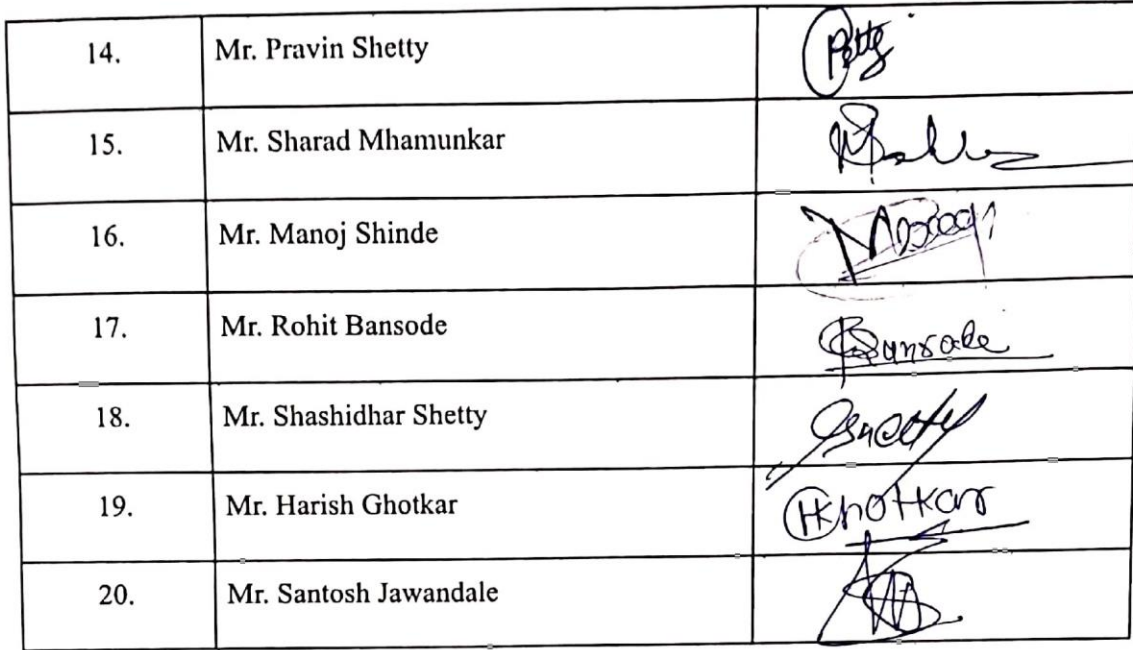 14. Mr. Pravin Shetty
15. Mr. Sharad Mhamunkar
16. Mr. Manoj Shinde
17. Mr. Rohit Bansode Bansode
18. Mr. Shashidhar Shetty
19. Mr. Harish Ghotkar
20. Mr. Santosh Jawandale